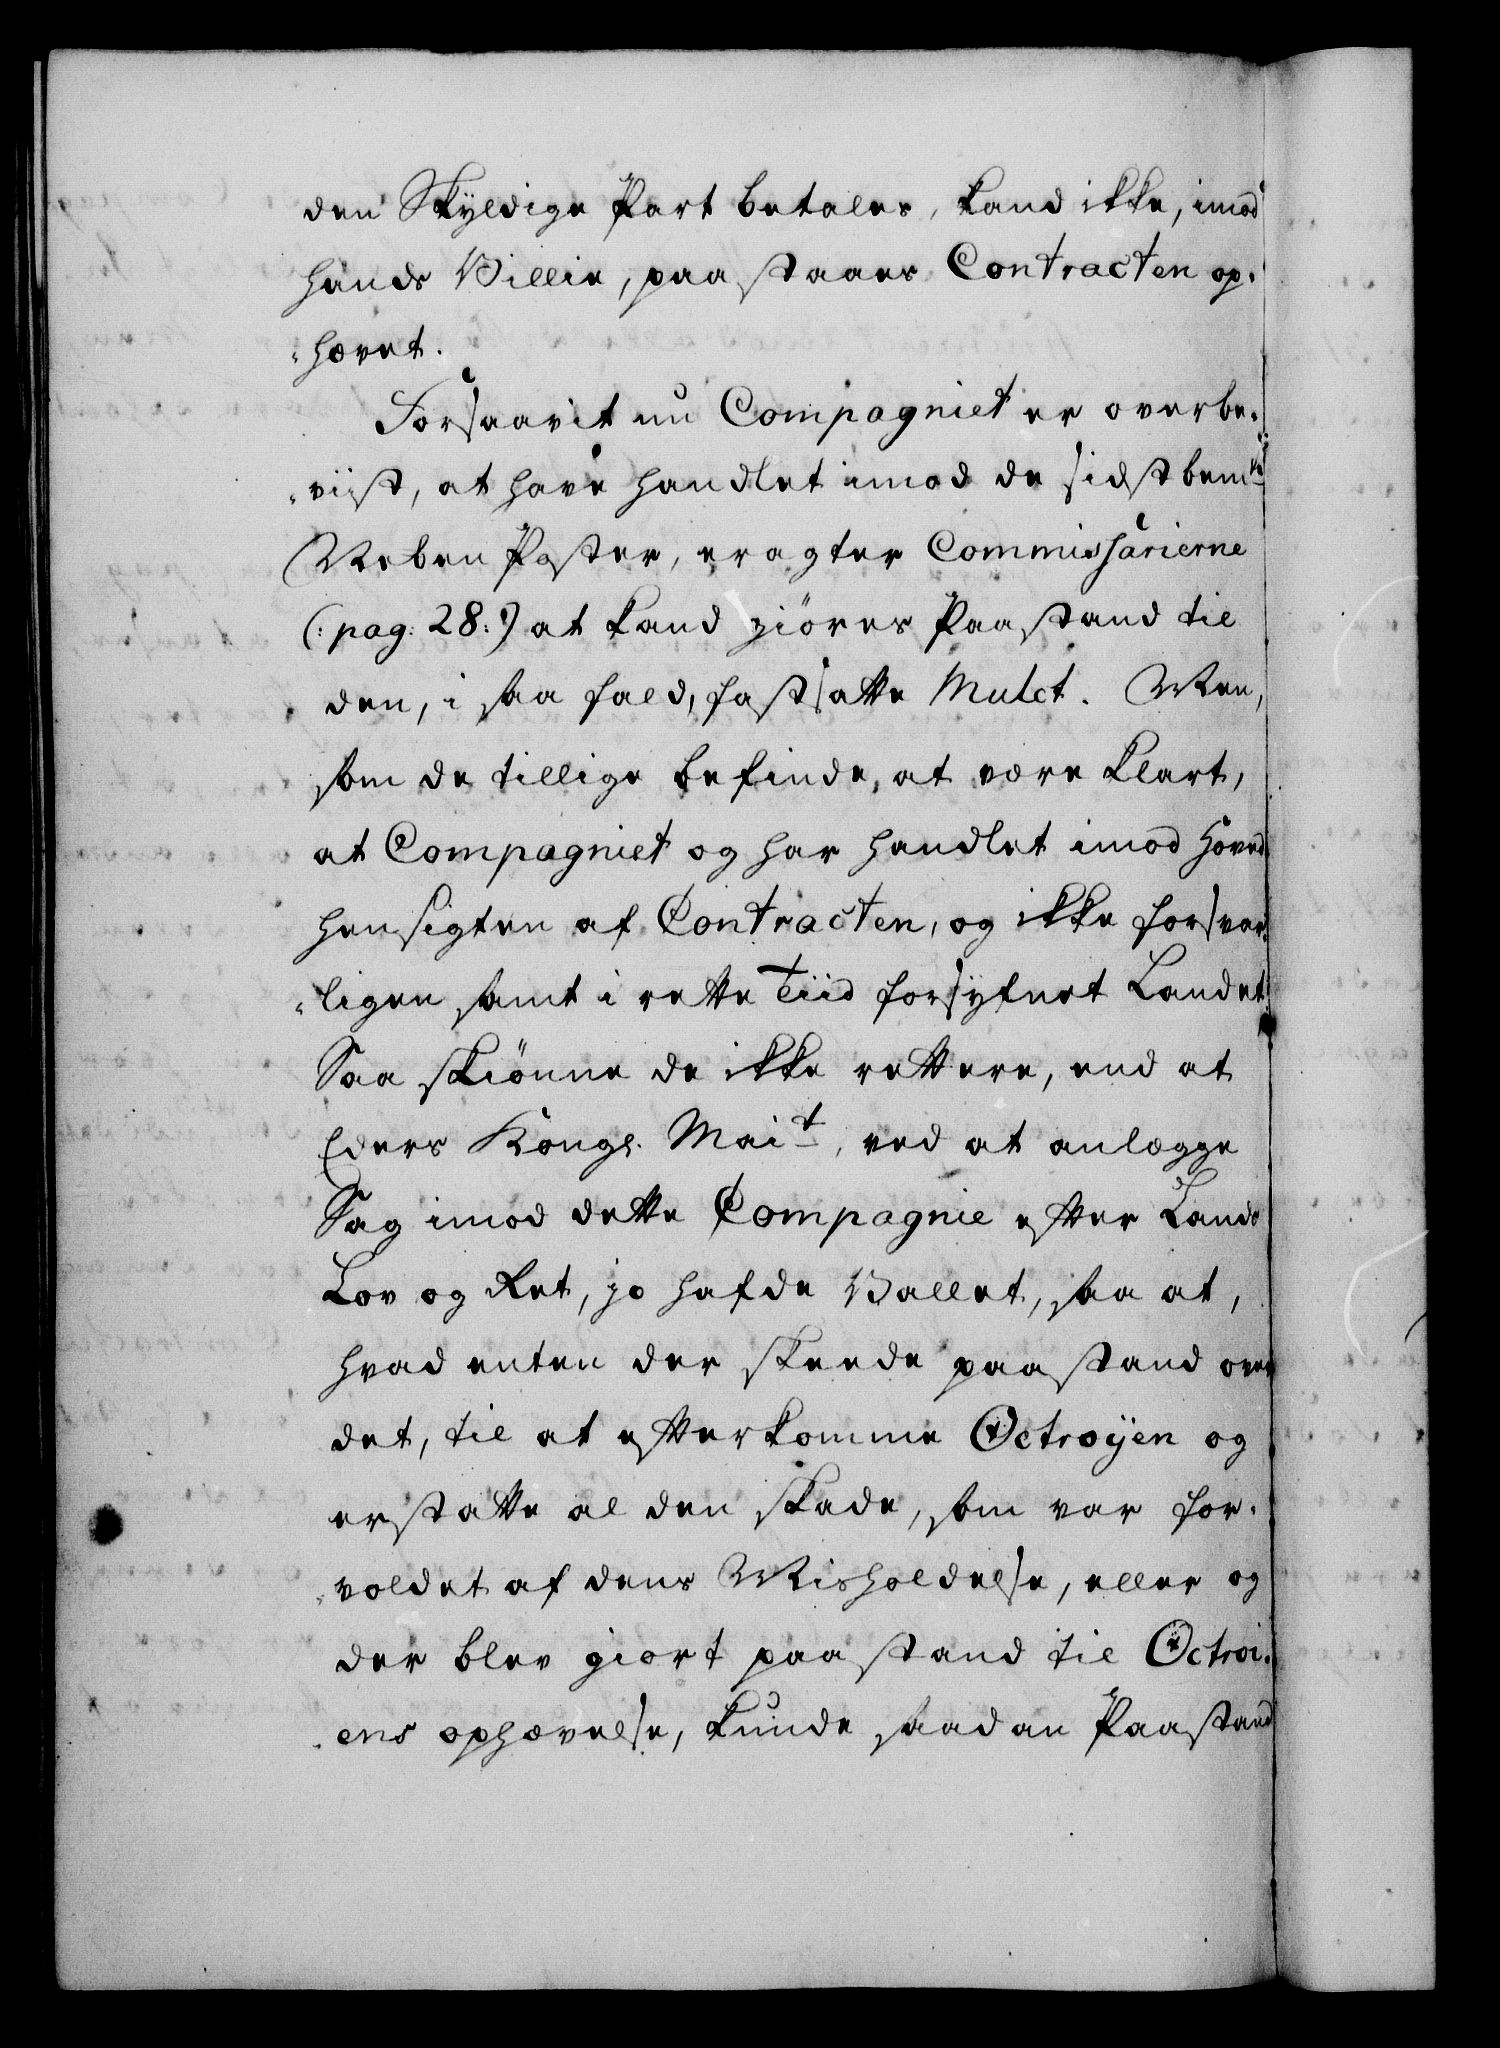 den Skÿldige Part betales, kand ikke, imod
hands Villie, paastaaes Contracten op-
hævet.
Forsaavit nu Compagniet er overbe-
viist, at have handlet imod de sidst bem.te
Neben Poster, eragter Commissarierne
(: pag: 28:) at kand giöres Paastand til
den, i saa fald, fastsatte Mulct. Men,
som de tillige befinde, at være klart,
at Compagniet og har handlet imod Hoved-
hensigten af Contracten, og ikke forsvar-
ligen samt i rette Tiid forsÿfnet Landet.
Saa skiönne de ikke rettere, end at
Eders Kongl. Mait, ved at anlægge
Sag imod dette Compagnie efter Lands
Lov og Ret, jo hafde Vallet, saa at,
hvad enten der skeede paastand over
det, til at efterkomme Octroÿen og
erstatte al den skade, som var for-
voldet af dens Misholdelse, eller og
der blev giort paastand til Octroi-
ens ophævelse, kunde saadan Paastand